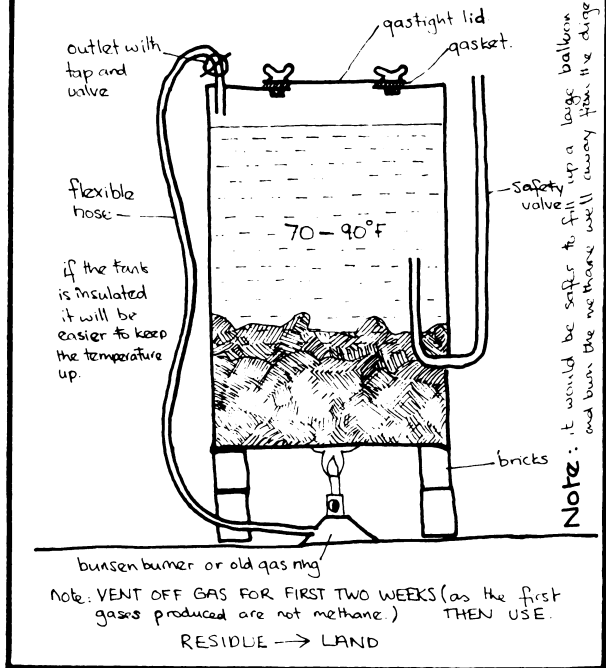 outlet with
tap and
valve
gastight lid
gasket.
flexible
hose
safety
valve
70 - 90°F
if the tank
is insulated
it will be
easier to keep
the temperature
up.
bricks
bunsen burner or old gas ring
note: VENT OFF GAS FOR FIRST TWO WEEKS (as the first
gases produced are not methane.) THEN USE.
RESIDUE → LAND
Note: it would be safer to fill up a large balloon
and burn the methane well away from the